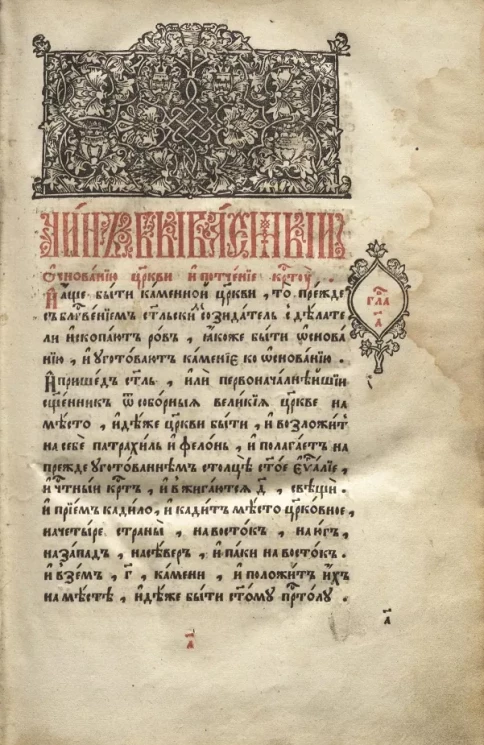 Чи́нъ быва́емыи
ѡ҆снова́нїю цр҃кви и҆ потче́нїе крⷭ҇тоу
А҆ще бы́ти ка́менной цр҃кви , то̀ пре́жде
съ блгⷭ҇ве́нїемъ ст҃льски созида́тель и҆ дѣ́лате
ли и҆скопа́ютъ ро́въ , ꙗ҆́коже бы́ти ѡ҆снова́
нїю , и҆ ᲂу҆гото́вают ка́менїе ко ѡ҆снова́нїю .
И҆ прише́дъ ст҃ль , и҆лѝ первонача́лнѣ́йшїи
сщ҃е́нникъ ѿ собо́рныѧ вели́кїѧ цр҃кве на
мѣ́сто , и҆дѣ́же цр҃кви бы́ти , и҆ возложи́т
на себѐ патрахи́ль и҆ фело́нь , и҆ полага́етъ на
пре́жде ᲂу҆гото́ваннѣмъ столцѣ̀ ст҃о́е є҆ѵⷢ҇а́лїе ,
и҆ чтⷭ҇ны́и крⷭ҇тъ , и҆ вжига́ютсѧ д҃ , свѣщѝ .
и҆ прїе́мъ кади́ло , и҆ кади́тъ мѣ́сто цр҃ко́вное ,
на четы́ре страны̀ , на восто́къ , на ю҆́гъ ,
на за́пад , на сѣ́веръ , и҆ па́ки на восто́къ .
и҆ взе́м , г҃ , ка́мени , и҆ положи́тъ и҆́хъ
на мѣ́стѣ , и҆дѣ́же бы́ти ст҃о́му прⷭ҇то́лу .
гла
а҃
а҃
а҃